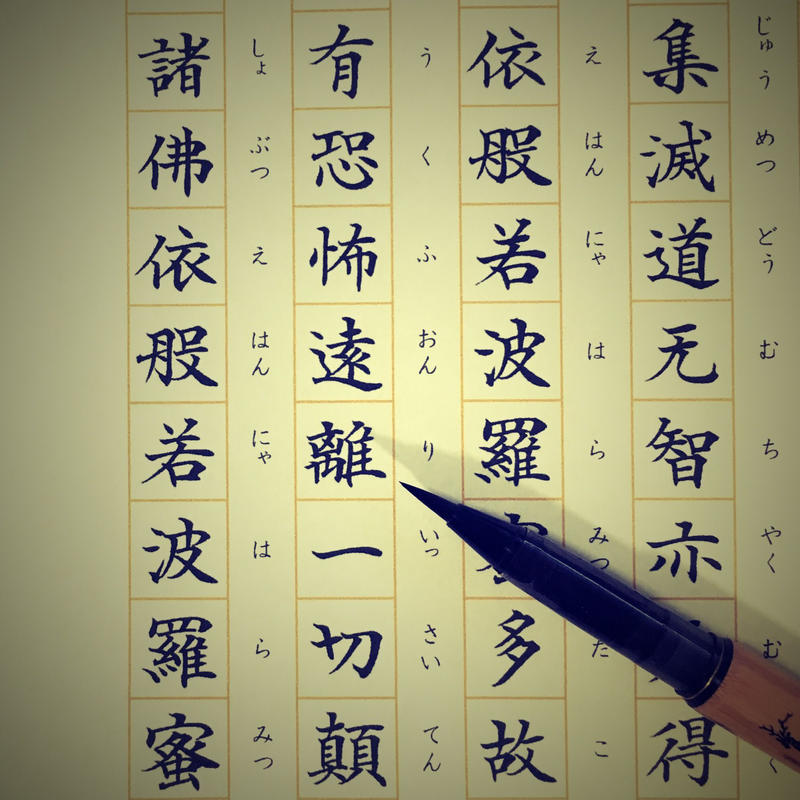 じゅう めつ どう む ち やく む
集滅道无智亦得
え はん にゃ は ら みつ た こ
依般若波羅多故
う く ふ おん り いっ さい てん
有恐怖遠離一切顛
しょ ぶつ え はん にゃ は ら みつ
諸佛依般若波羅蜜